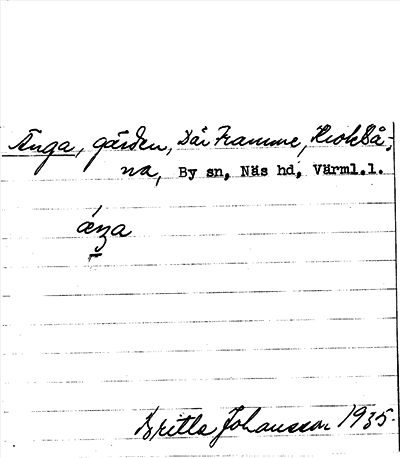 Änga, gården, Där Framme, Krokbå-
na, By sn, Näs hd, Värml.l.
ǽŋa
Britta Johansson 1935.